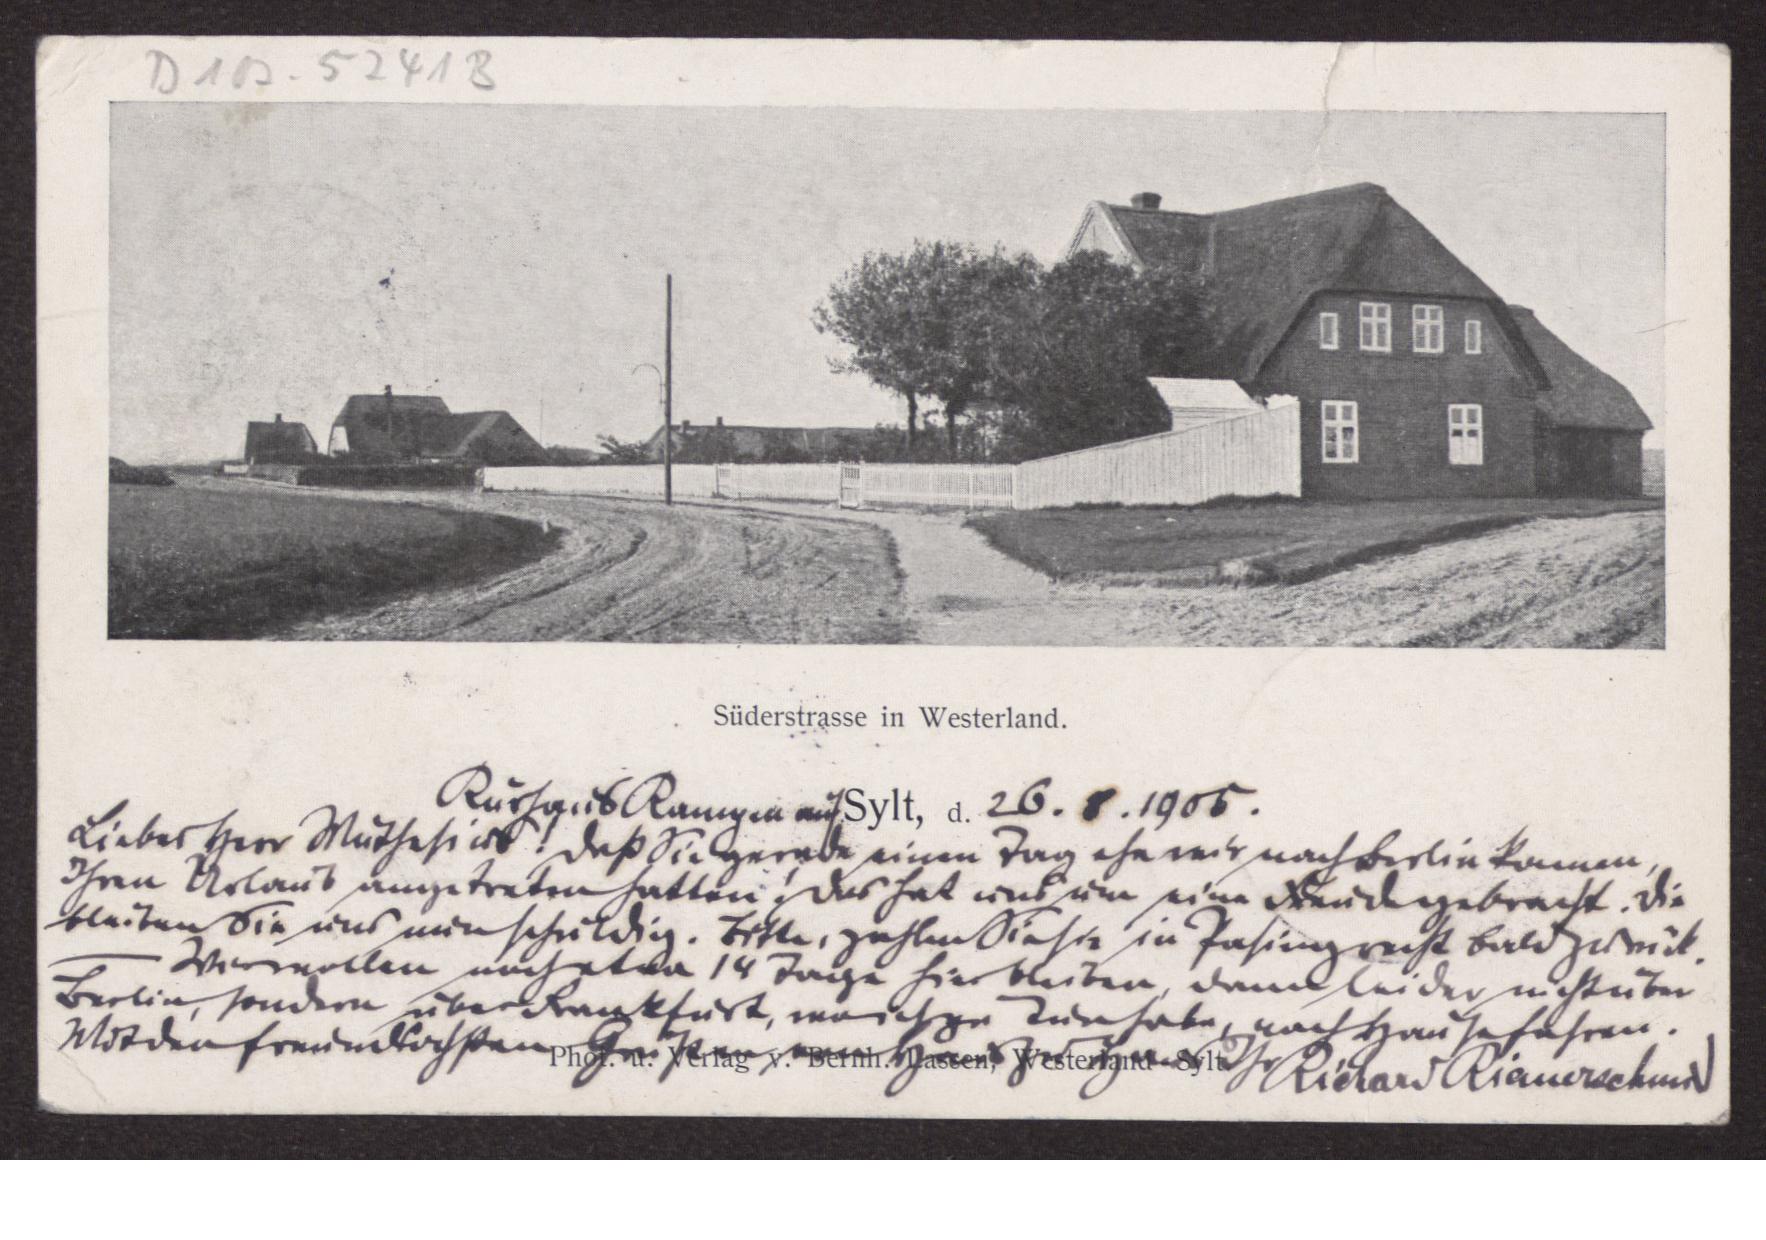 D 102-5241B
Süderstrasse in Westerland.
Kurhaus Kampen auf Sylt, d. 26. 8. 1905.
Lieber Herr Muthesius! Daß Sie gerade einen Tag ehe wir nach Berlin kamen,
Ihren Urlaub angetreten hatten! Das hat uns um eine Freude gebracht. Die
bleiben Sie uns nun schuldig. Bitte, zahlen Sie sie in Pasing recht bald zurück.
— Wir wollen noch etwa 14 Tage hier bleiben, dann leider nicht über
Berlin, sondern über Frankfurt, wo ich zu tun habe, nach Hause fahren.
Mit den freundlichsten Grüßen von Haus zu Haus Ihr Richard Riemerschmid
Phot. u. Verlag v. Bernh. Lassen, Westerland-Sylt.